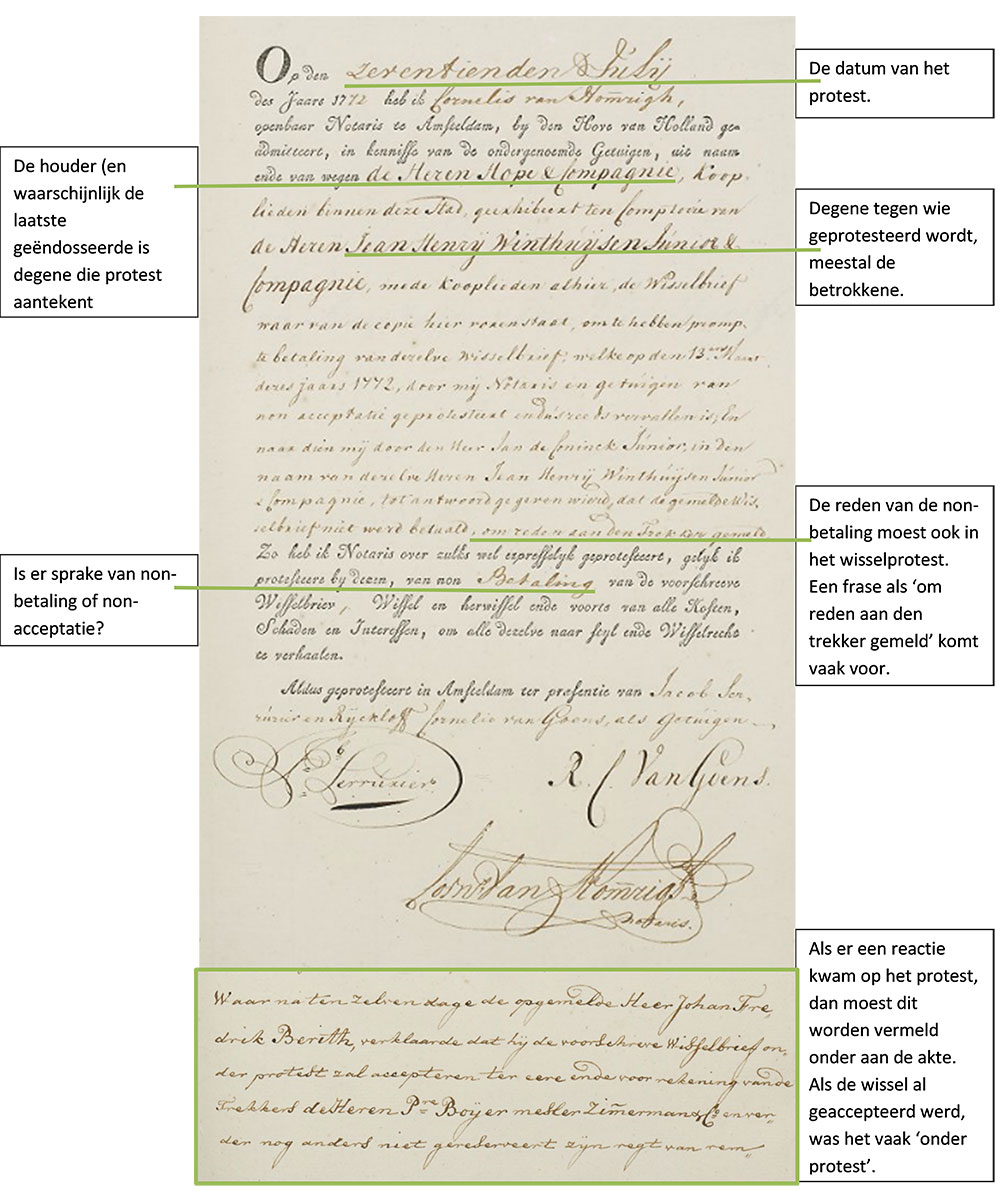 Op den zeventienden July
des Jaars 1772 heb ik Cornelis van Homrigh,
openbaar Notaris te Amsteldam, by den Hove van Holland ge-
admitteert, in kennisse van de ondergenoemde Getuigen, uit naam
ende van wegen de Heren Hope & Compagnie, Koop-
lieden binnen deze Stad, geexhibeert ten Comptoire van
de Heren Jean Henrÿ Winthuÿsen Júnior &
Compagnie, mede Kooplieden alhier, de Wisselbrief
waar van de copie hier vorenstaat, om te hebben promp-
te betaling van dezelve Wisselbrief, welke op den 13den Maart
dezes jaars 1772, door mij Notaris en getuigen van
non acceptatie geprotesteert en dus reeds vervallen is, En
naar dien mij door den Heer Jan de Coninck Júnior, in den
naam van dezelve Heren Jean Henrÿ Winthuÿsen Júnior
& Compagnie, tot antwoord gegeven wierd, dat de gemelde Wis-
selbrief niet werd betaald, om reden aan den Trekker gemeld
Zo heb ik Notaris over zulks wel expresselyk geprotesteert, gelyk ik
protesteere by dezen, van non Betaling van de voorschreve
Wisselbriev, Wissel en herwissel ende voorts van alle Kosten,
Schaden en Interessen, om alle dezelve naar styl ende Wisselrecht
te verhaalen.
Aldus geprotesteert in Amsteldam ter presentie van Jacob Ser-
rúzier en Rÿckloff Cornelis van Goens, als Getuigen
Serruzier.
R. C. Van Goens.
Corns Van Homrigh
Notaris.
Waar na ten zelven dage de opgemelde Heer Johan Fre,
drik Berith, verklaarde dat hij de voorschreve Wisselbrief on-
der protest zal accepteren ter eere ende voor rekening van de
Trekkers de Heren Pre Boÿer mesler Zimerman & Co en ver-
der nog anders niet gereserveert zÿn regt van rem
De datum van het
protest.
De houder (en
waarschijnlijk de
laatste
geëndosseerde is
degene die protest
aantekent
Degene tegen wie
geprotesteerd wordt,
meestal de
betrokkene.
De reden van de non-
betaling moest ook in
het wisselprotest.
Een frase als ‘om
reden aan den
trekker gemeld’ komt
vaak voor.
Is er sprake van non-
betaling of non-
acceptatie?
Als er een reactie
kwam op het protest,
dan moest dit
worden vermeld
onder aan de akte.
Als de wissel al
geaccepteerd werd,
was het vaak ‘onder
protest’.